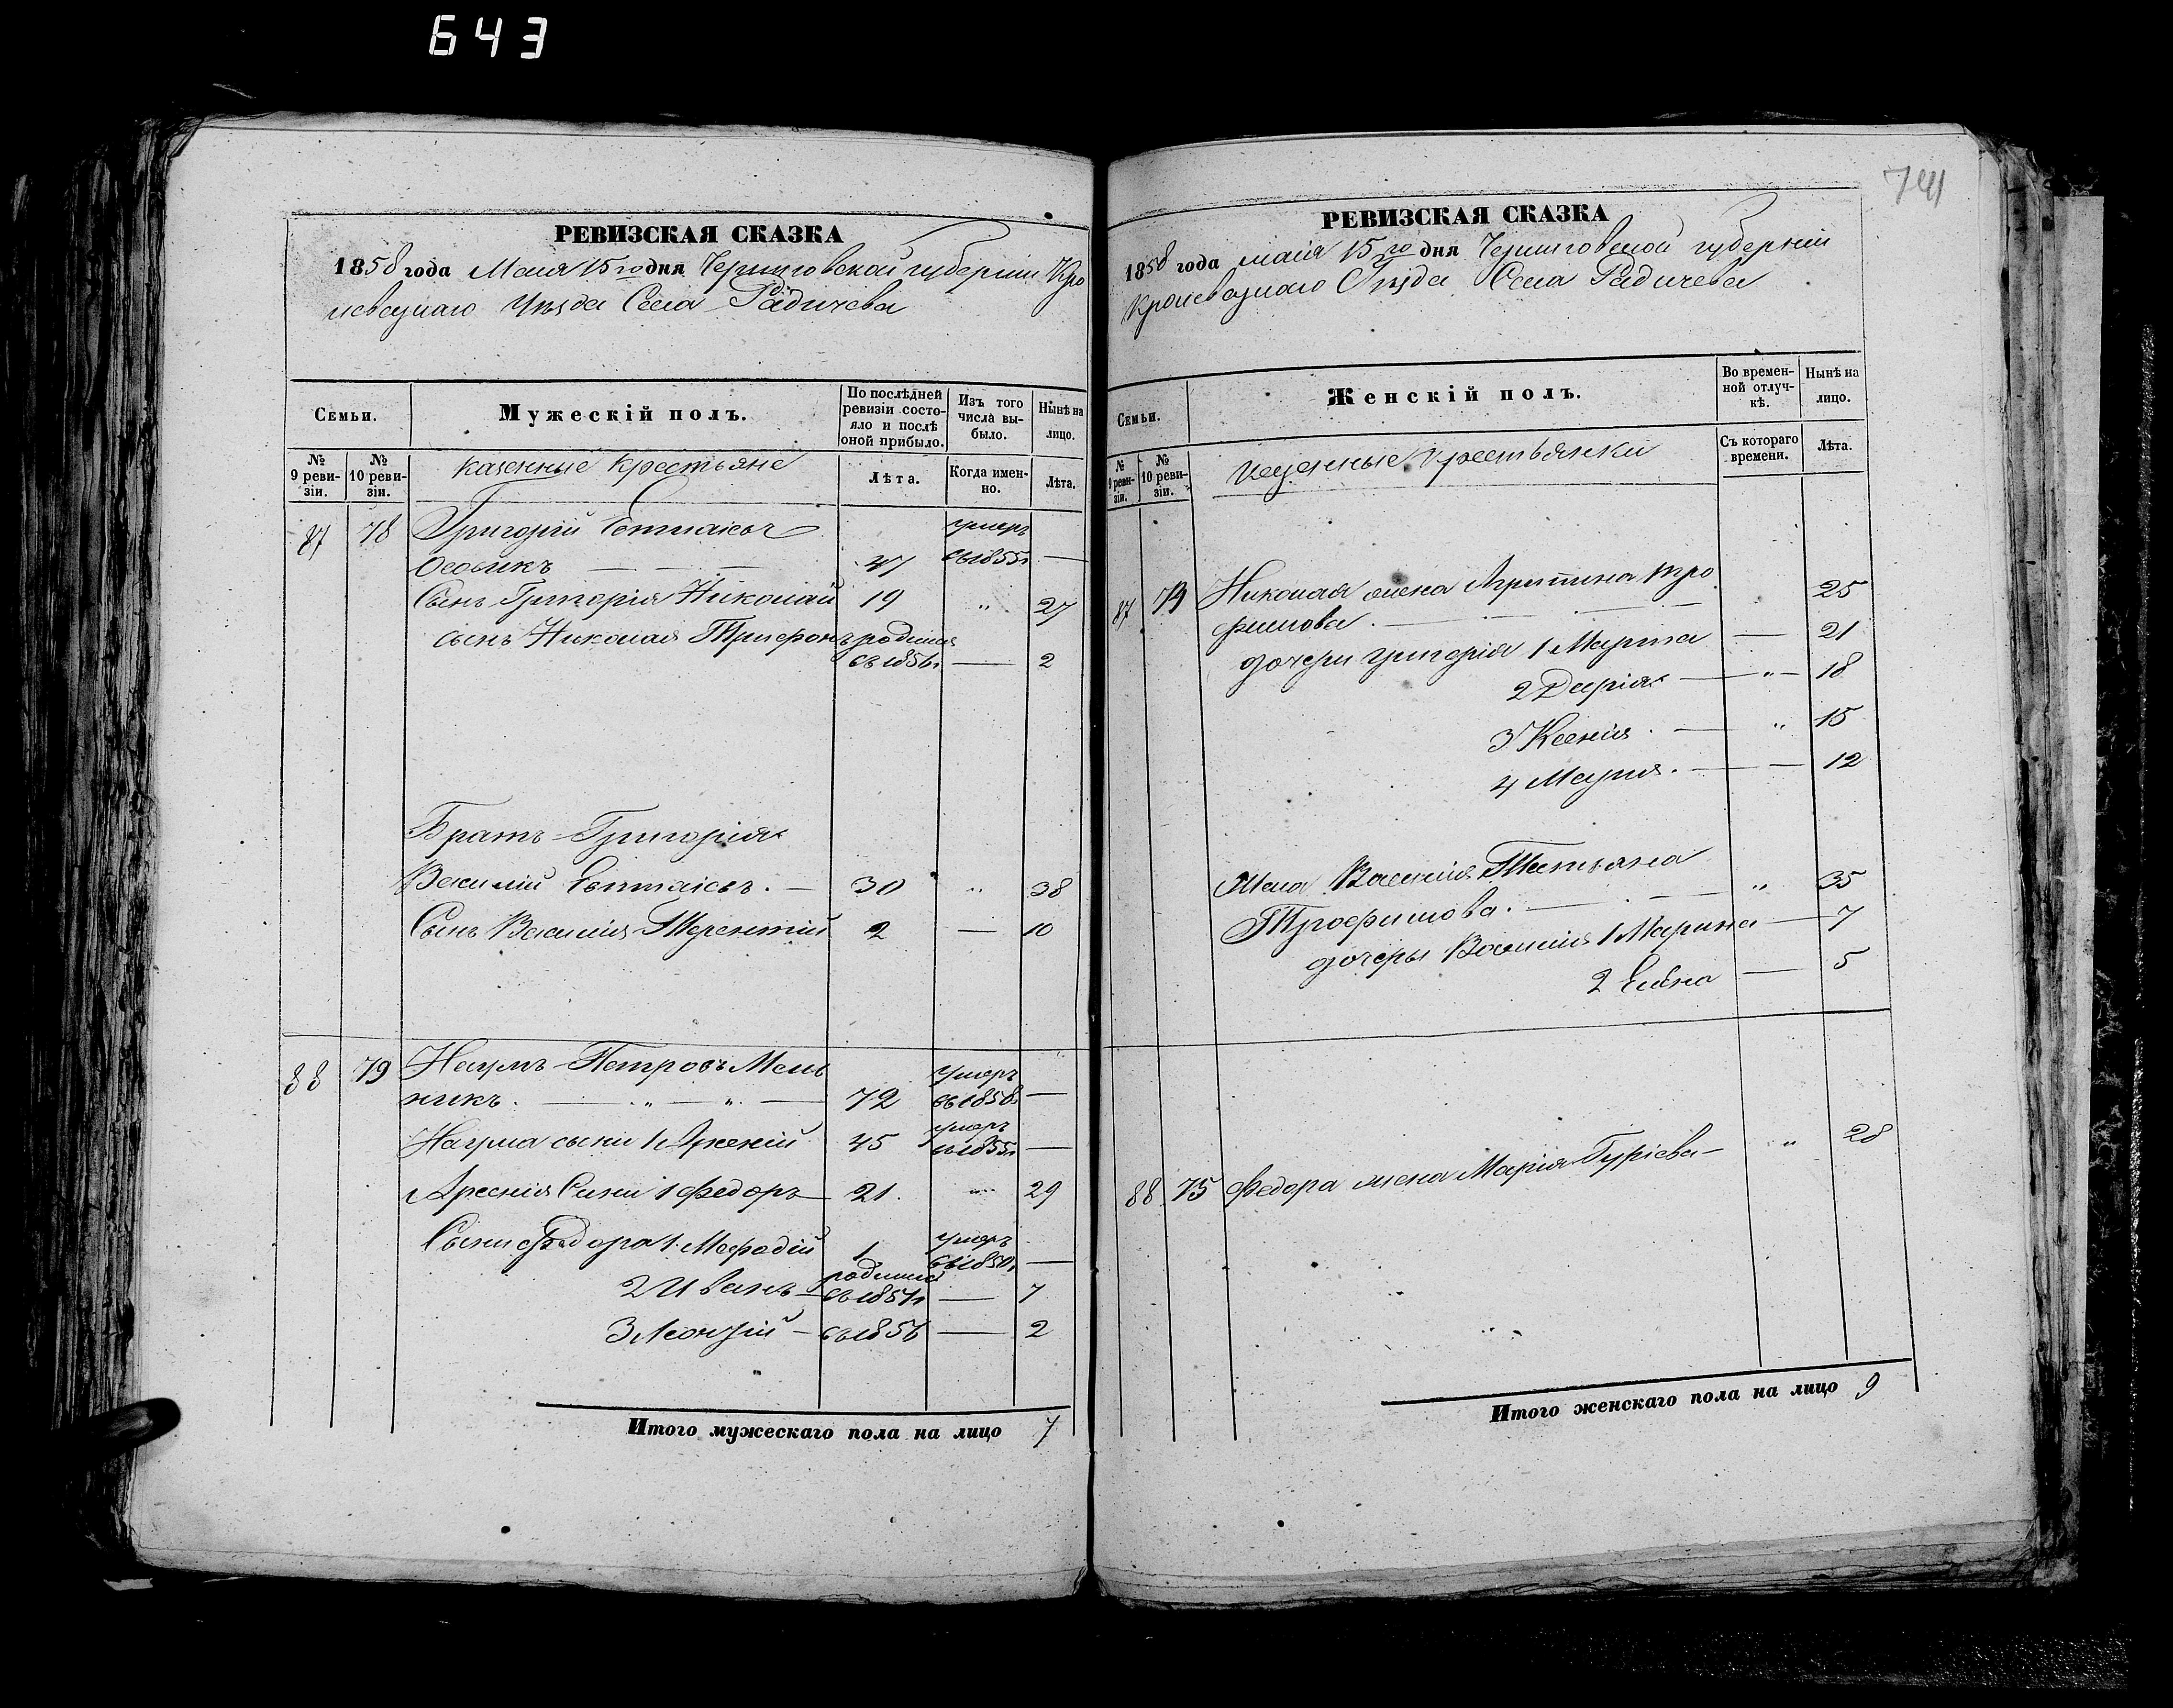 643
741
РЕВИЗСКАЯ СКАЗКА
1858 года Мая 15го дня Черниговской губернии Кро
левецкаго Уѣзда Села Радичева
Семьи.
Мужескій полъ.
По послѣдней ревизіи состо-
яло и послѣ
оной прибыло.
Изъ того
числа вы-
было.
Нынѣ на
лицо.
№
9 реви-
зіи.
№
10 реви-
зіи.
казенные крестьяне
Лѣта.
Когда имен-
но.
Лѣта.
87 78 Григорій Евтихіевъ умеръ
47 въ 1855г —
Сынъ Григорія Николай 19 " 27
сынъ Николая Трифонъ родился
въ 1856г — 2
Братъ Григорія
Василій Евтихіевъ. — 30 " 38
Сынъ Василія Терентій 2 — 10
88 79 Наумъ Петровъ Мель умеръ
никъ. — " — " — 72 въ 1858 —
Наума сыни 1 Арсеній 45 умеръ въ 1855г —
Арсенія Сини 1 Федоръ 21. " 29
Сыни Федора 1 Мефодій 1 умеръ въ 1850г —
2 Иванъ родился въ 1851г — 7
3 — въ 1856 — 2
Итого мужескаго пола на лицо 7
РЕВИЗСКАЯ СКАЗКА
1858 года маія 15го дня Черниговской губерніи
Кролевецкаго Уѣзда Села Радичева
Семьи.
Женскій полъ.
Во времен-
ной отлуч-
кѣ.
Нынѣ на
лицо.
№
9 реви-
зіи.
№
10 реви-
зіи.
казенные крестьянки
Съ котораго
времени.
Лѣта.
87 Николая жена Агрипина Тро 25
фимова. —
дочери Григорія 1 Марта — 21
2 Дарія — " — 18
3 Ксенія. — " 15
4 Марія. — — 12
Жена Василія Татіяна
Трофимова. — " 35
дочеры Василія 1 Марина — 7
2 Елена — 5
88 75 Федора жена Марія Гуріева — " 28
Итого женскаго пола на лицо 9